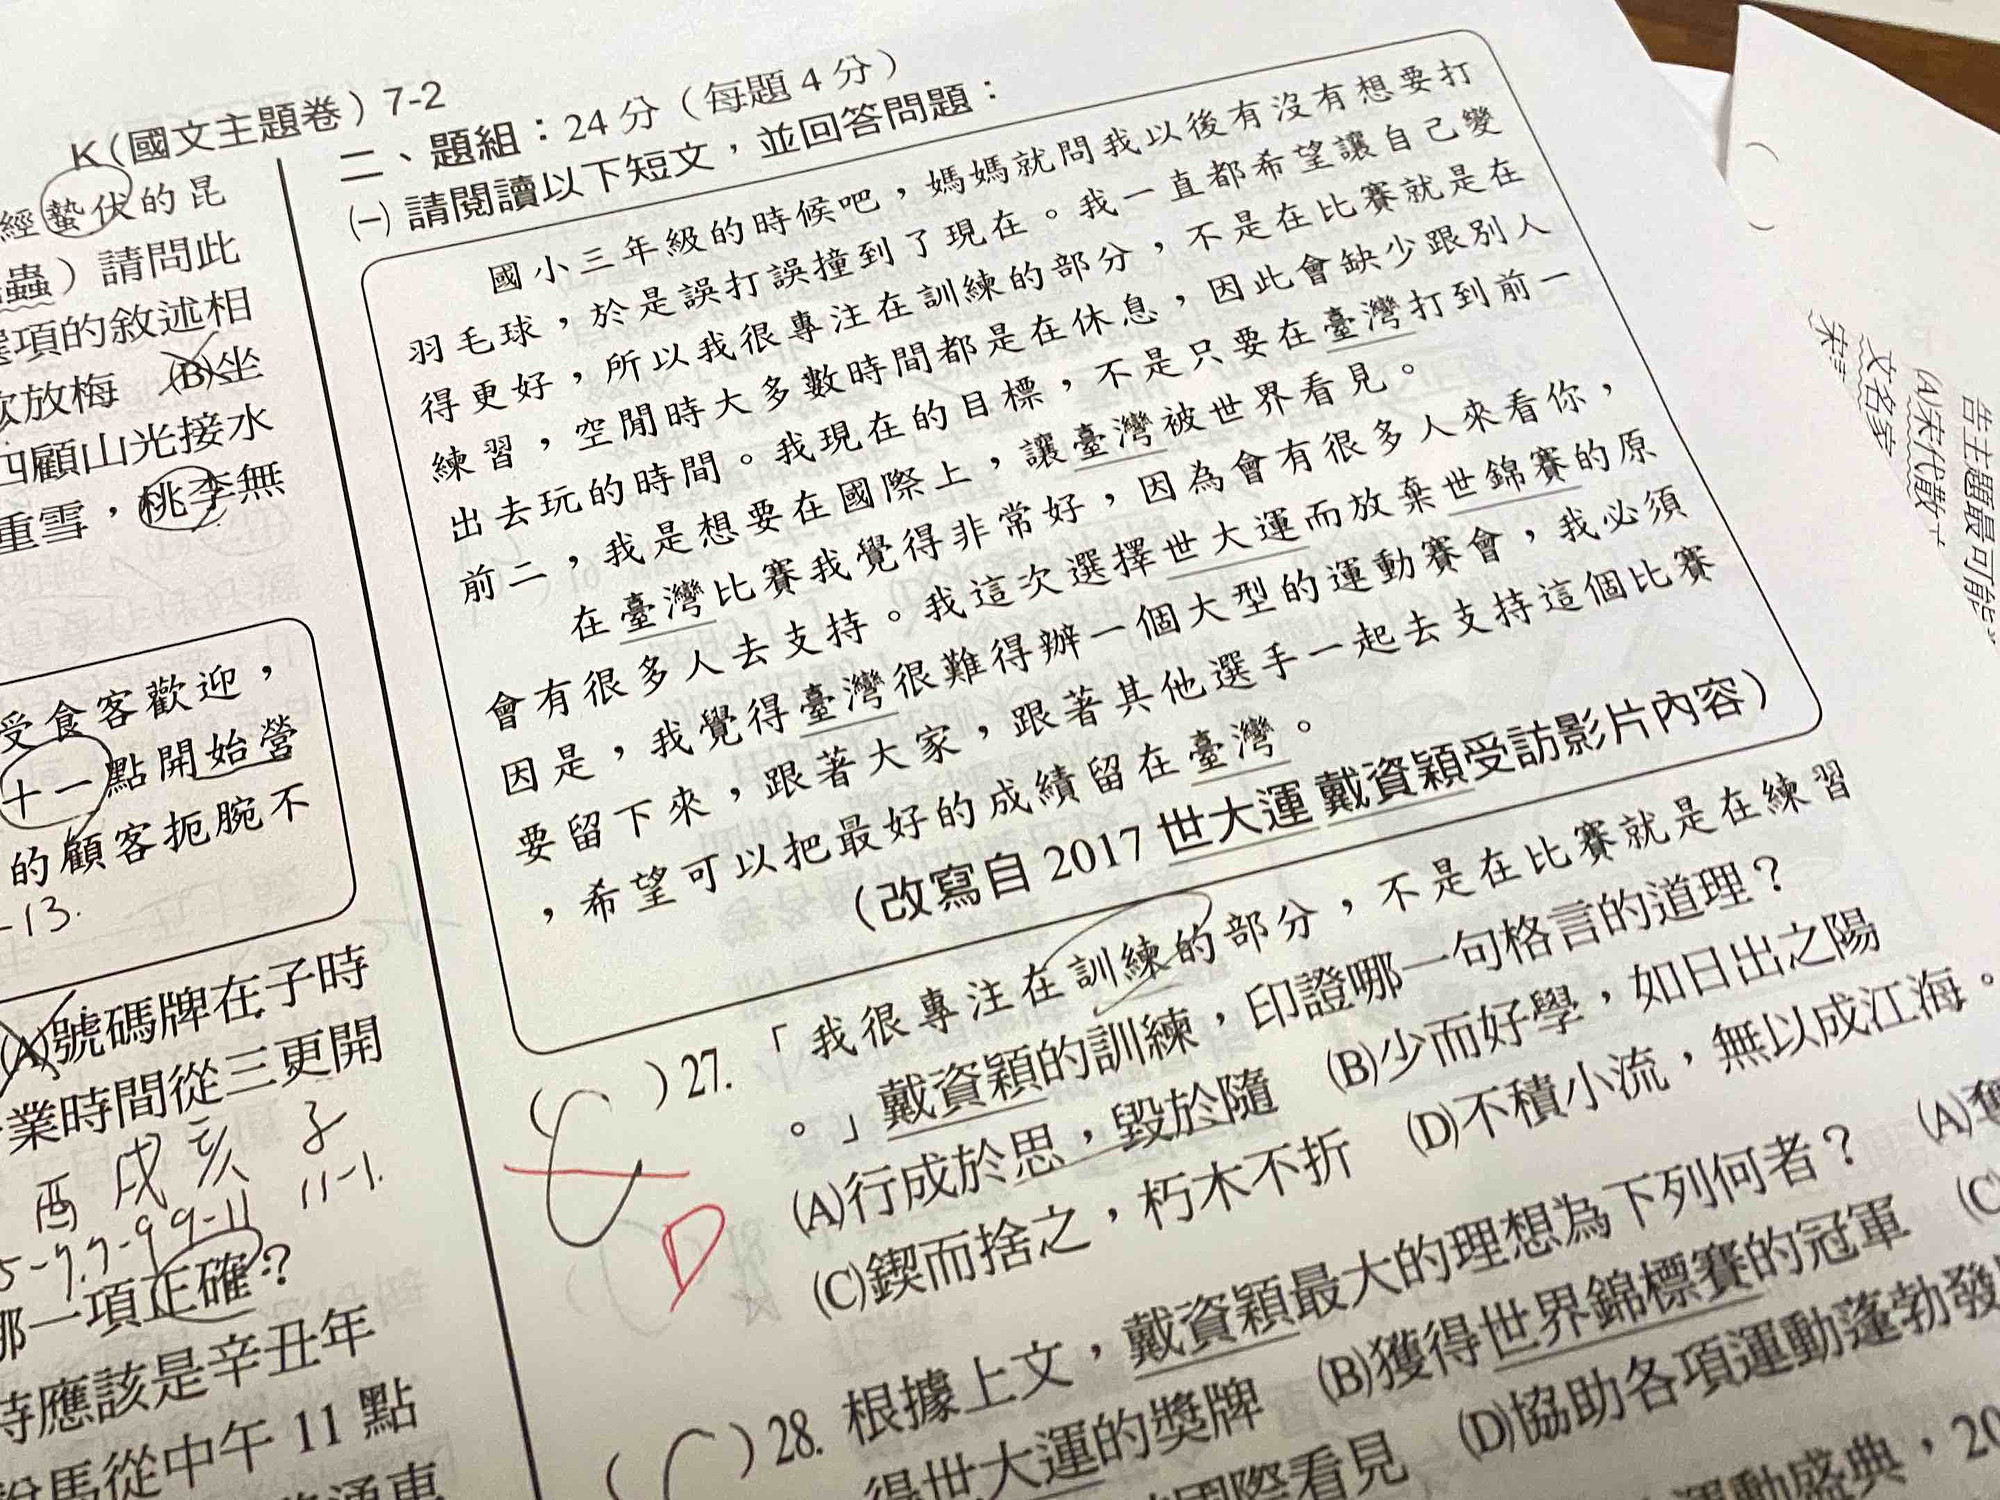 K(國文主題卷) 7-2
經蟄伏的昆
蟲）請問此
選項的敘述相
放梅 (B)坐
四顧山光接水
重雪，桃李無
受食客歡迎，
十一點開始營
的顧客扼腕不
-13.
(A)號碼牌在子時
業時間從三更開
酉 戌 亥 子
5-7.7-9 9-11 11-1.
哪一項正確？
時應該是辛丑年
說馬從中午 11 點
二、題組：24 分（每題 4 分）
㈠ 請閱讀以下短文，並回答問題：
國小三年級的時候吧，媽媽就問我以後有沒有想要打
羽毛球，於是誤打誤撞到了現在。我一直都希望讓自己變
得更好，所以我很專注在訓練的部分，不是在比賽就是在
練習，空閒時大多數時間都是在休息，因此會缺少跟別人
出去玩的時間。我現在的目標，不是只要在臺灣打到前一
前二，我是想要在國際上，讓臺灣被世界看見。
在臺灣比賽我覺得非常好，因為會有很多人來看你，
會有很多人去支持。我這次選擇世大運而放棄世錦賽的原
因是，我覺得臺灣很難得辦一個大型的運動賽會，我必須
要留下來，跟著大家，跟著其他選手一起去支持這個比賽
，希望可以把最好的成績留在臺灣。
（改寫自 2017 世大運 戴資穎受訪影片內容）
（C）27. 「我很專注在訓練的部分，不是在比賽就是在練習
。」戴資穎的訓練，印證哪一句格言的道理？
D
(A)行成於思，毀於隨 (B)少而好學，如日出之陽
(C)鍥而捨之，朽木不折 (D)不積小流，無以成江海。
（ ）28. 根據上文，戴資穎最大的理想為下列何者？ (A)奪
得世大運的獎牌 (B)獲得世界錦標賽的冠軍 (C)
國際看見 (D)協助各項運動蓬勃發
運動盛典，20
告主題最可能
(A)宋代散
文名家